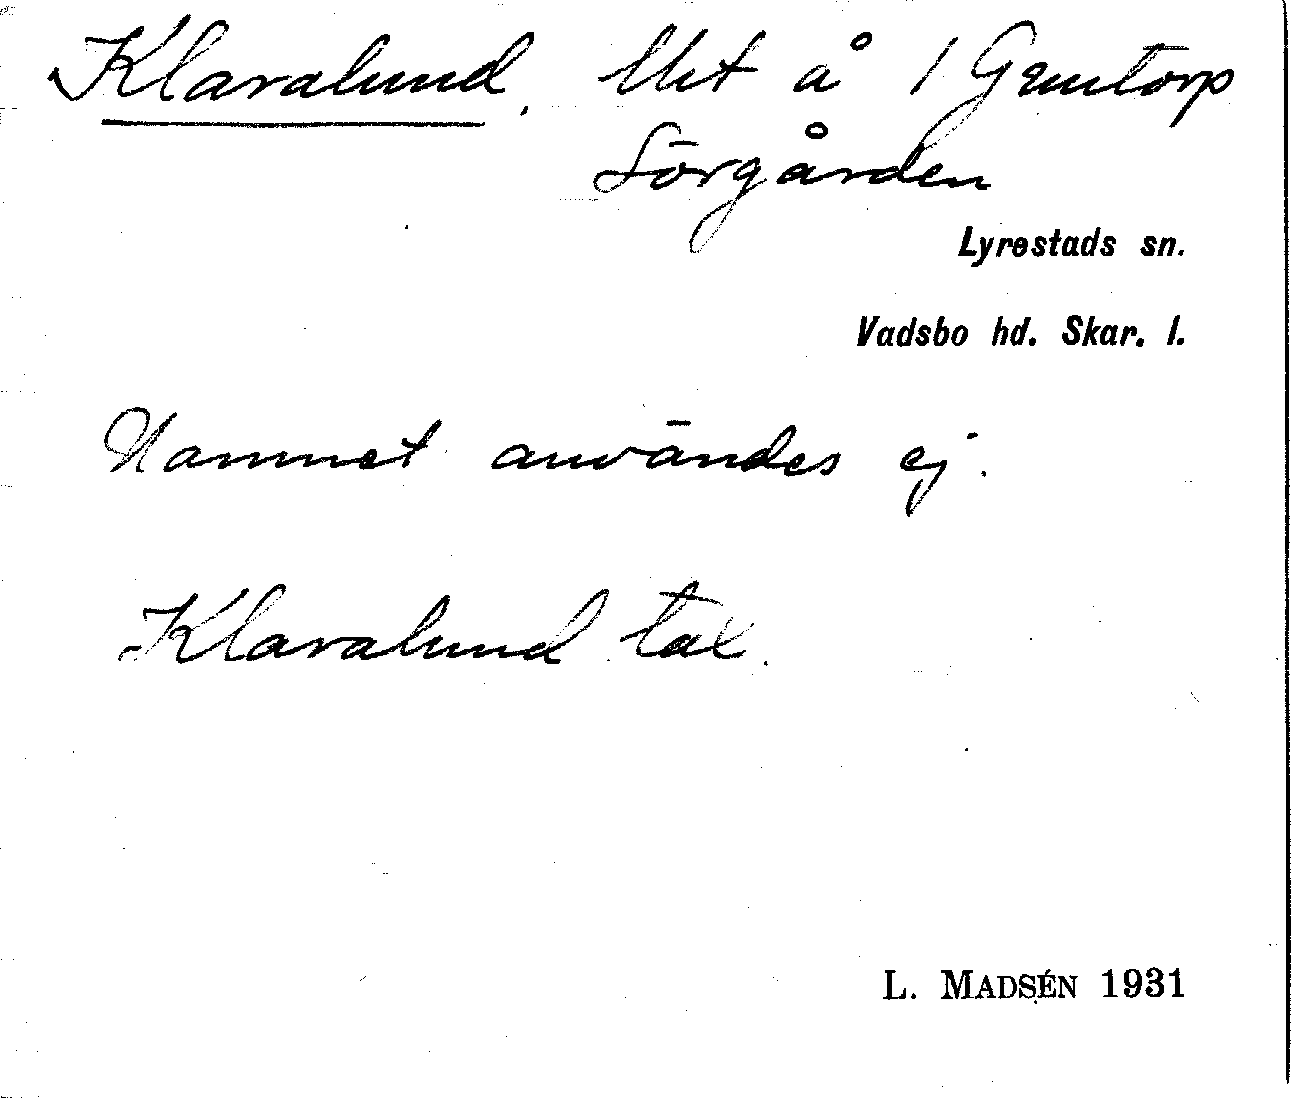 Klaralund, Uet å 1 Gruntorp
Sörgården
Lyrestads sn.
Vadsbo hd. Skar. l.
Namnet användes ej.
Klaralund tax.
L. MADSÉN 1931